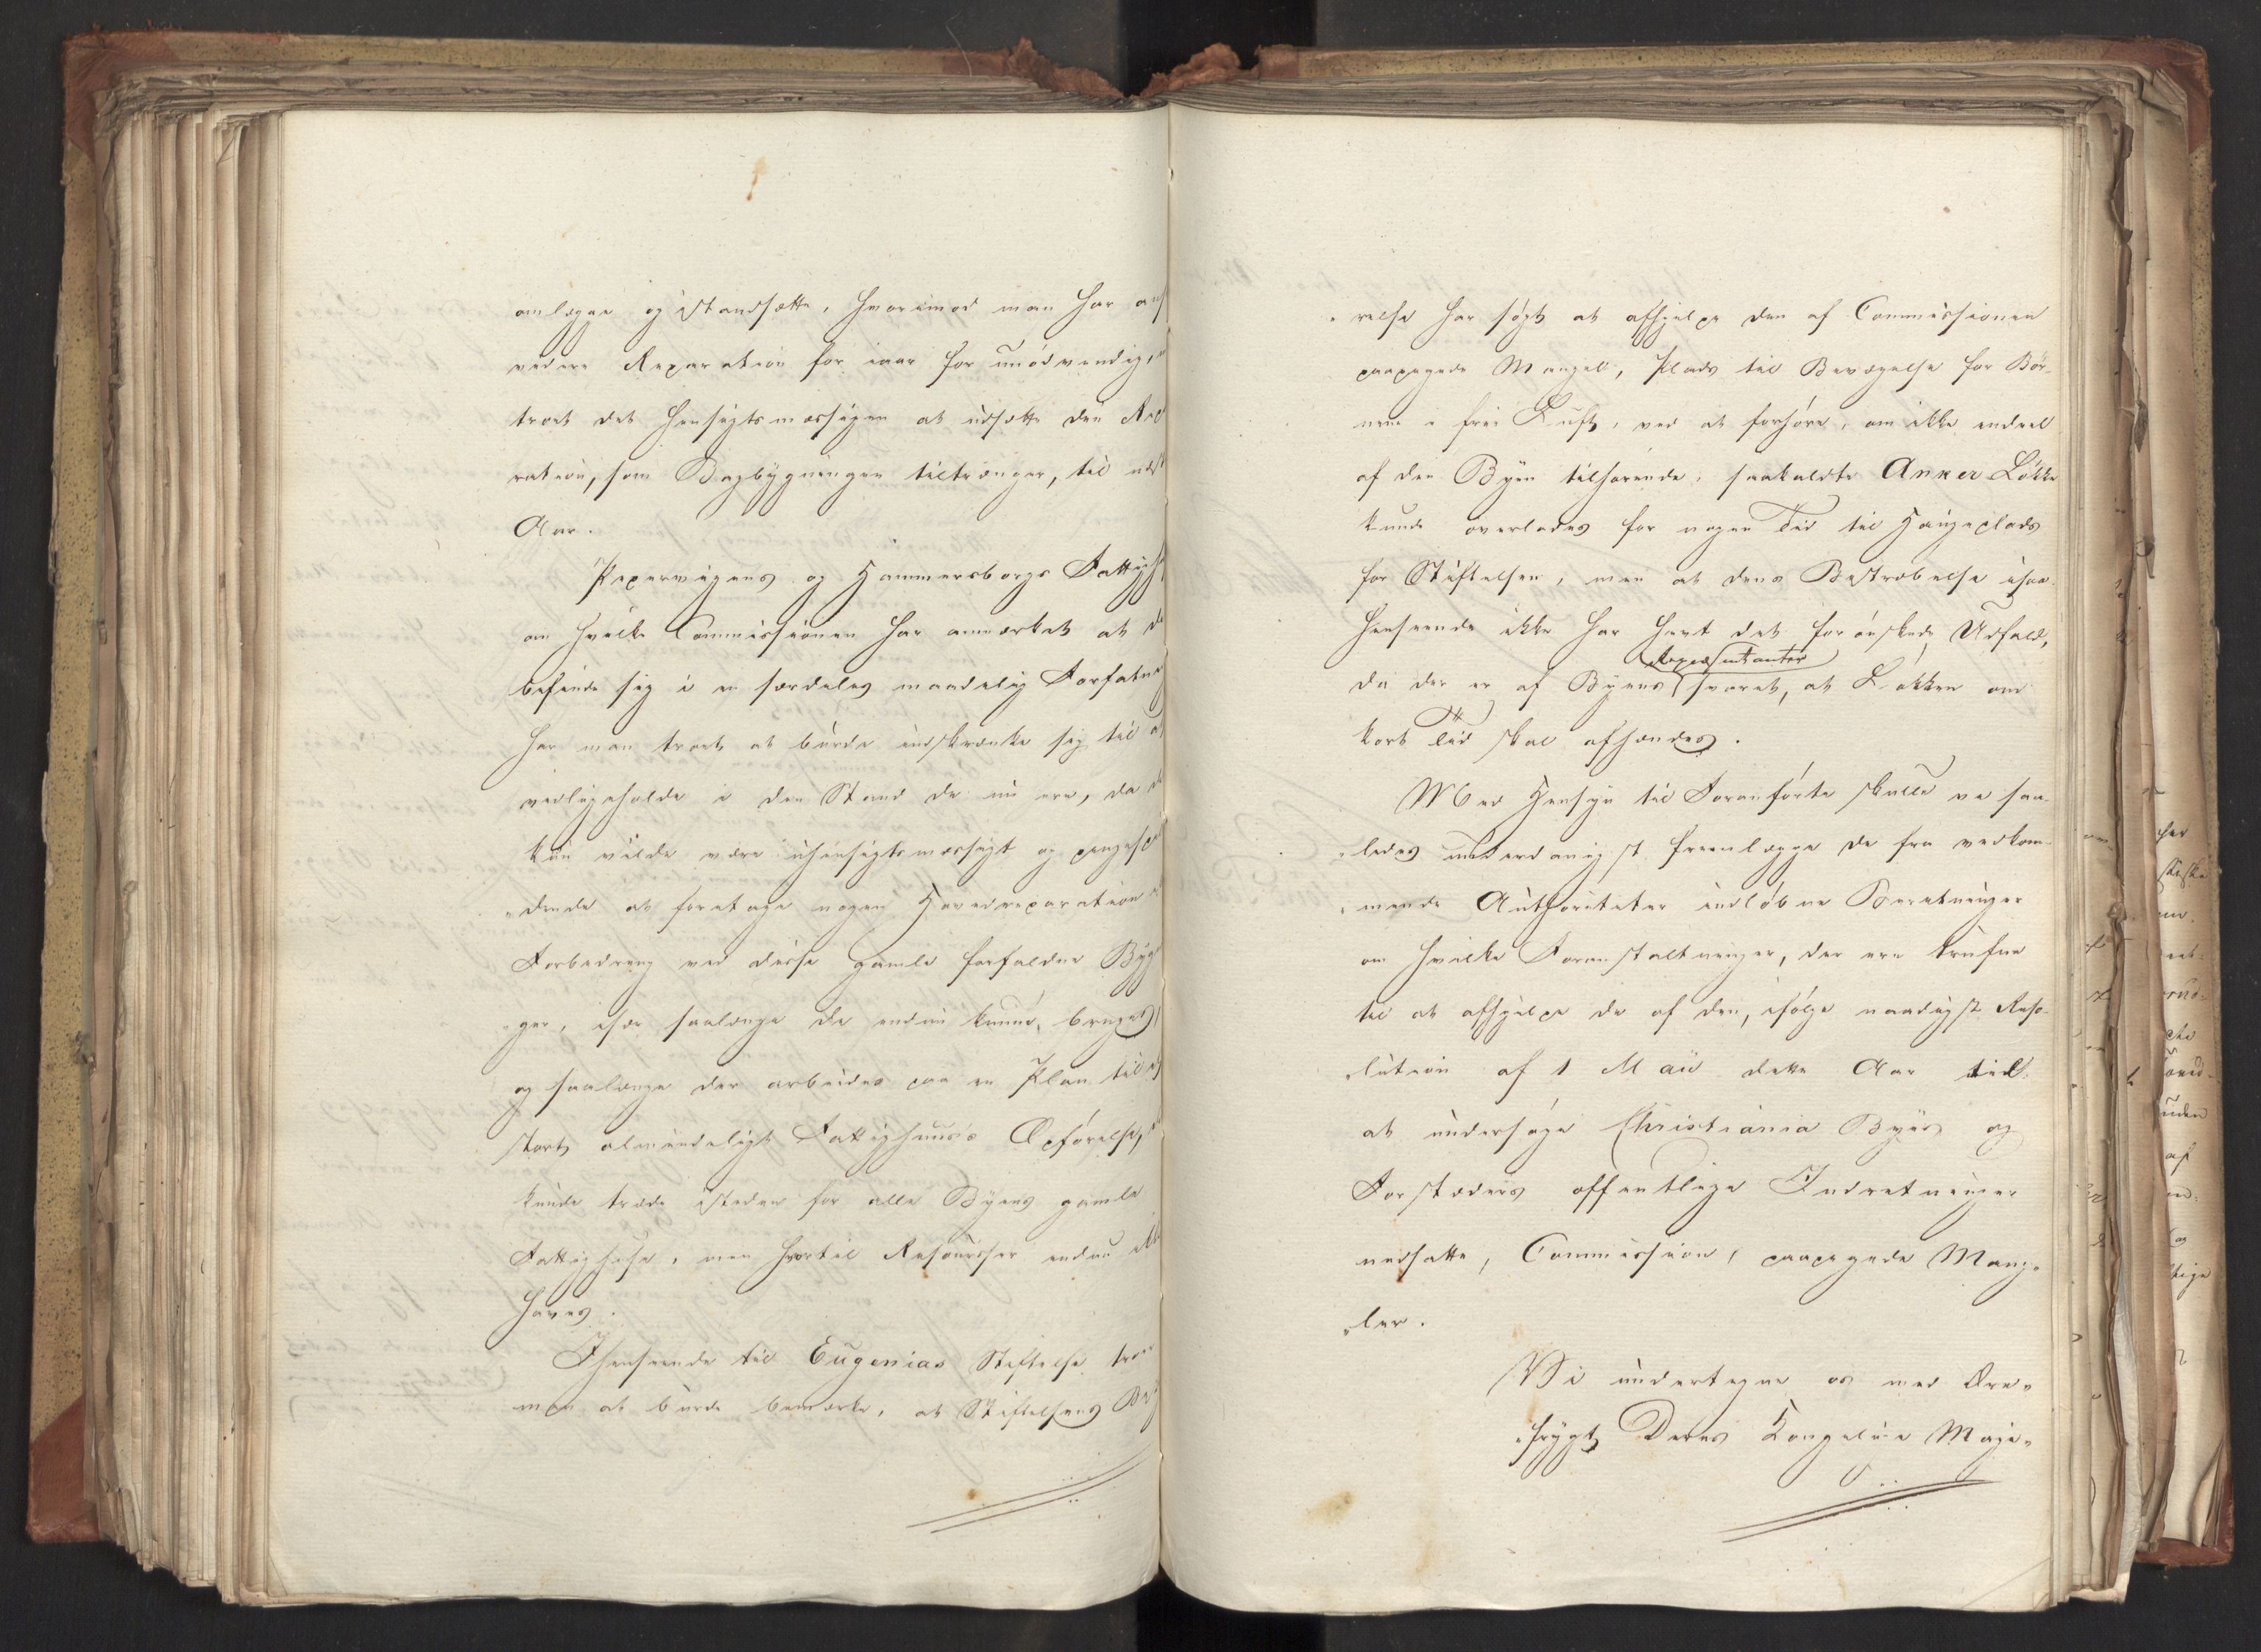 omlægge og istandsætte, hvorimod man har an
videre Reparation for iaar for unødvendig,
troet det hensigtsmæssigen at udsætte den Re
ration, som Bagbygningen tiltrænger, til næst
Aar.
Pipervigens og Hammersborgs Fattigh
om hvilke Commissionen har anmærket at de
befinde sig i en særdeles maadelig Forfatn
har man troet at burde indskrænke sig til at
vedligeholde i den Stand de nu ere, da d
kun vilde være uhensigtsmæssigt og pengesp
„dende at foretage nogen Hovedreparation
Forbedring ved disse gamle forfaldne Byg
„ger, især saalænge de endnu kunne bruges,
og saalænge der arbeides paa en Plan til et
stort almindeligt Fattighuus's Opførelse,
kunde træde istedet for alle Byens gamle
Fattighuse, men hvortil Resourcer endnu ikke
haves.
Ihenseende til Eugenias Stiftelse troer
man at burde bemærke, at Stiftelsens Be
„relse har søgt at afhjelpe den af Commissionen
paapegede Mangel, Plads til Bevægelse for Bør-
nene i frie Luft, ved at forhøre, om ikke endeel
af den Byen tilhørende, saakaldte Anker Løkke
kunde overlades for nogen Tid til Haugeplads
for Stiftelsen, men at dens Bestræbelse i saa
Henseende ikke har havt det forønskede Udfald,
Repræsentanter
da der er af Byens svaret, at Løkken om
kort Tid skal afhændes.
Med Hensyn til Foranførte skulle vi saa-
„ledes underdanigst fremlægge de fra vedkom-
„mende Authoriteter indløbne Beretninger
om hvilke Foranstaltninger, der ere trufne
til at afhjelpe de af den, ifølge naadigst Reso-
„lution af 1 Maii dette Aar til
at undersøge Christiania Byes og
Forstæders offentlige Indretninger
nedsatte, Commission, paapegede Mang-
„ler.
Vi undertegne os med Ære-
„frygt Deres Kongelige Maje-